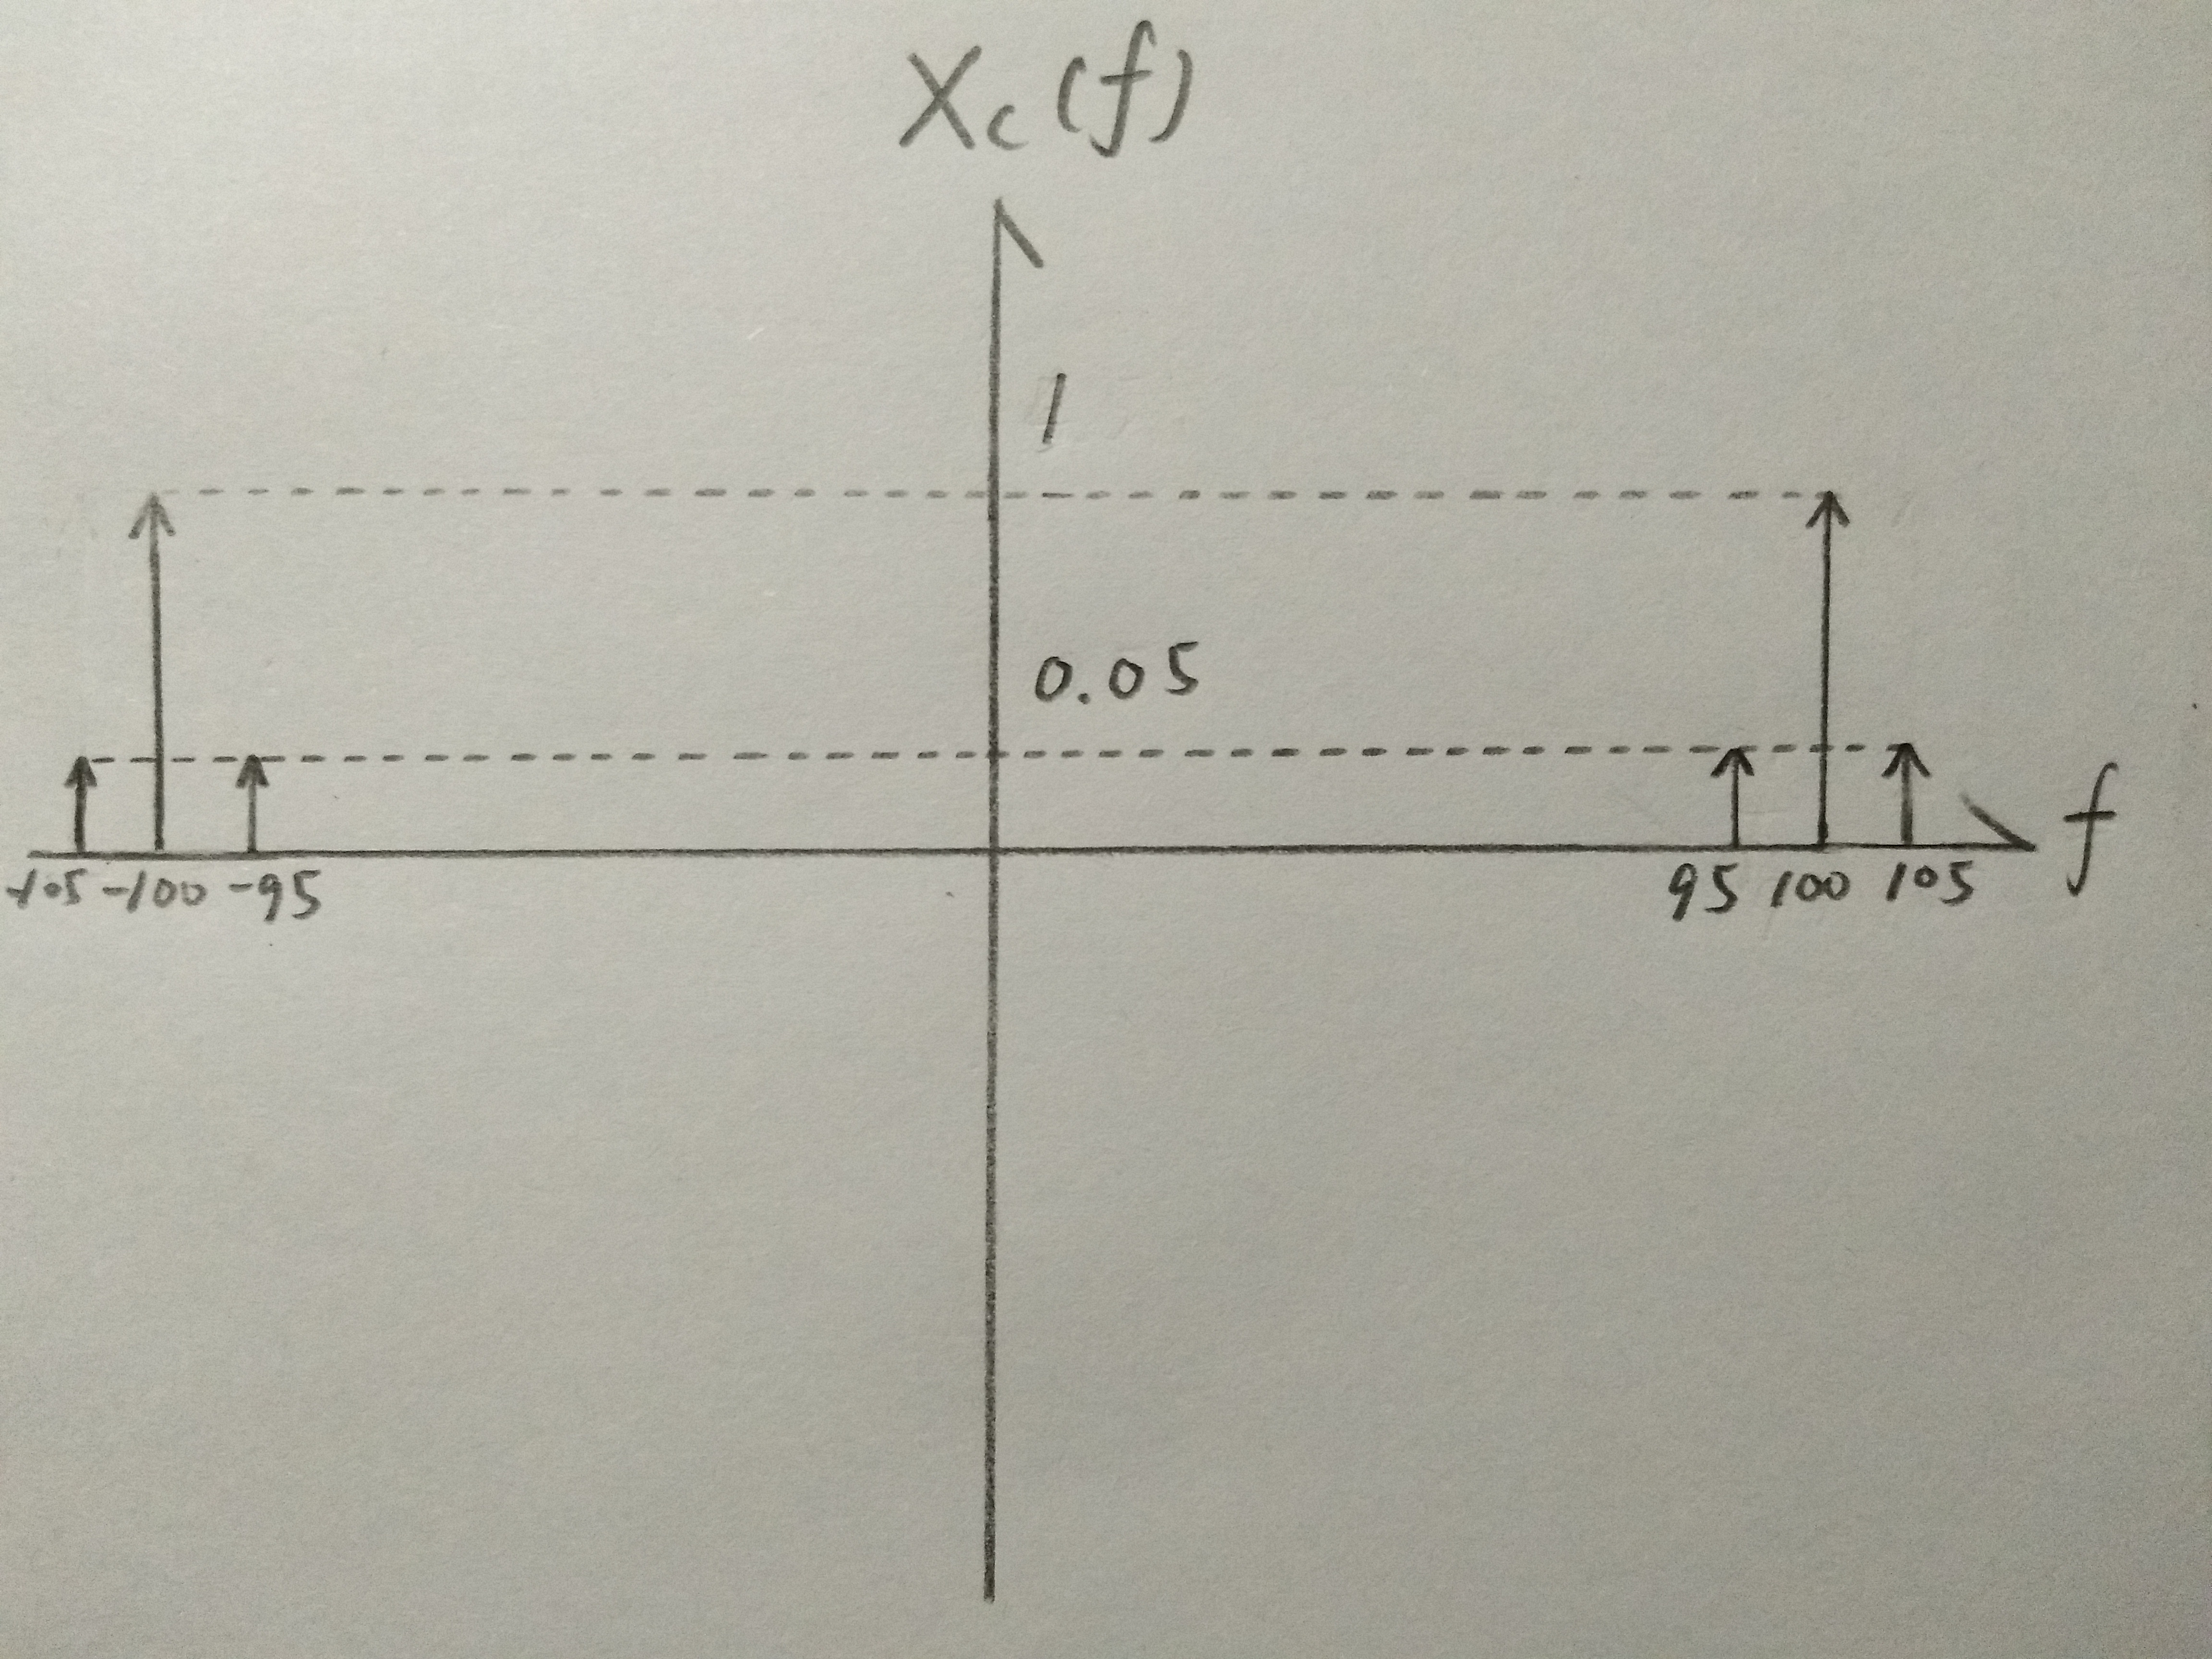 Xc(f)
1
0.05
f
-105 -100 -95 95 100 105